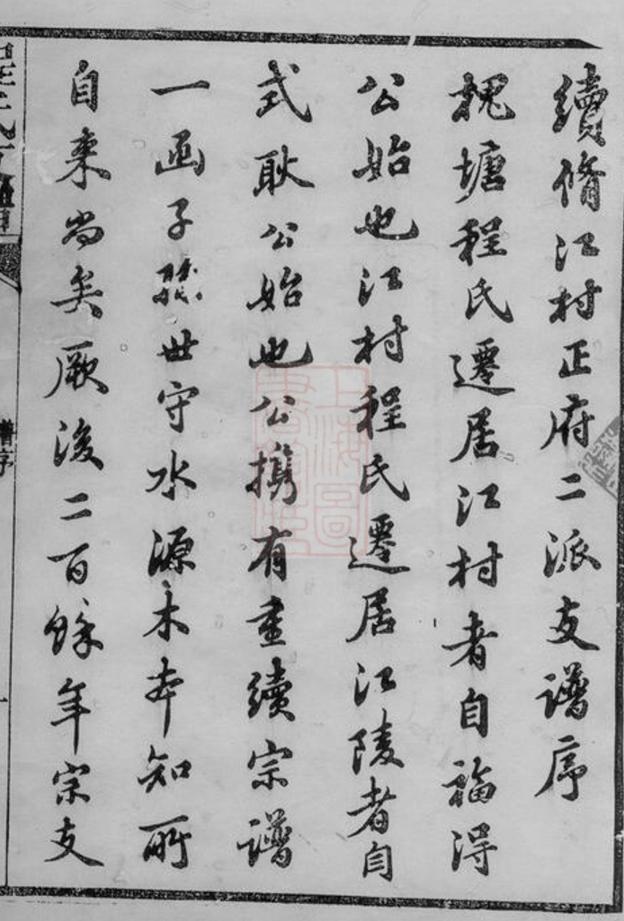 續脩江村正府二派支譜序
槐塘程氏遷居江村者自福得
公始也江村程氏遷居江陵者自
式耿公始也公攜有重續宗譜
一函子孫世守水源木本知所
自來尚矣厥後二百餘年宗支
譜序
一
上海圖書館藏